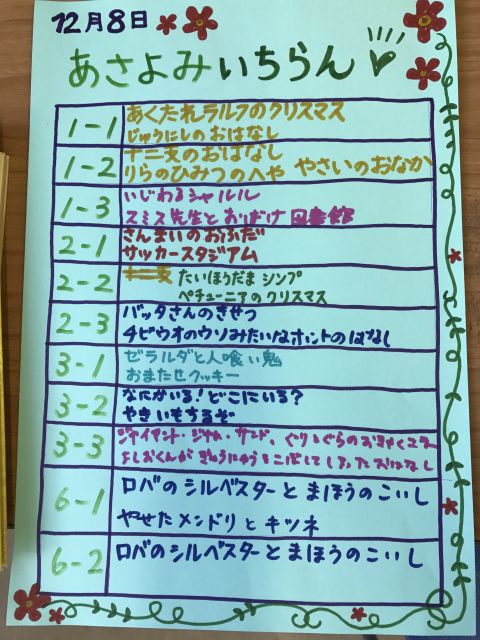 12月8日
あさよみいちらん
1-1
あくたれラルフのクリスマス
じゅうにしのおはなし
1-2
十二支のおはなし
りらのひみつのへや やさいのおなか
1-3
いじわるシャルル
スミス先生とおばけ図書館
2-1
さんまいのおふだ
サッカースタジアム
2-2
十二支 たいほうだま シンプ
ペチューニアのクリスマス
2-3
バッタさんのきせつ
チビウオのウソみたいなホントのはなし
3-1
ゼラルダと人喰い鬼
おまたせクッキー
3-2
なにがいる!どこにいる?
やきいもするぞ
3-3
ジャイアント・ジャム・サンド、ぐりとぐらのおきゃくさま
よしおくんがぎゅうにゅうをこぼしてしまったおはなし
6-1
ロバのシルベスターとまほうのこいし
やせたメンドリとキツネ
6-2
ロバのシルベスターとまほうのこいし